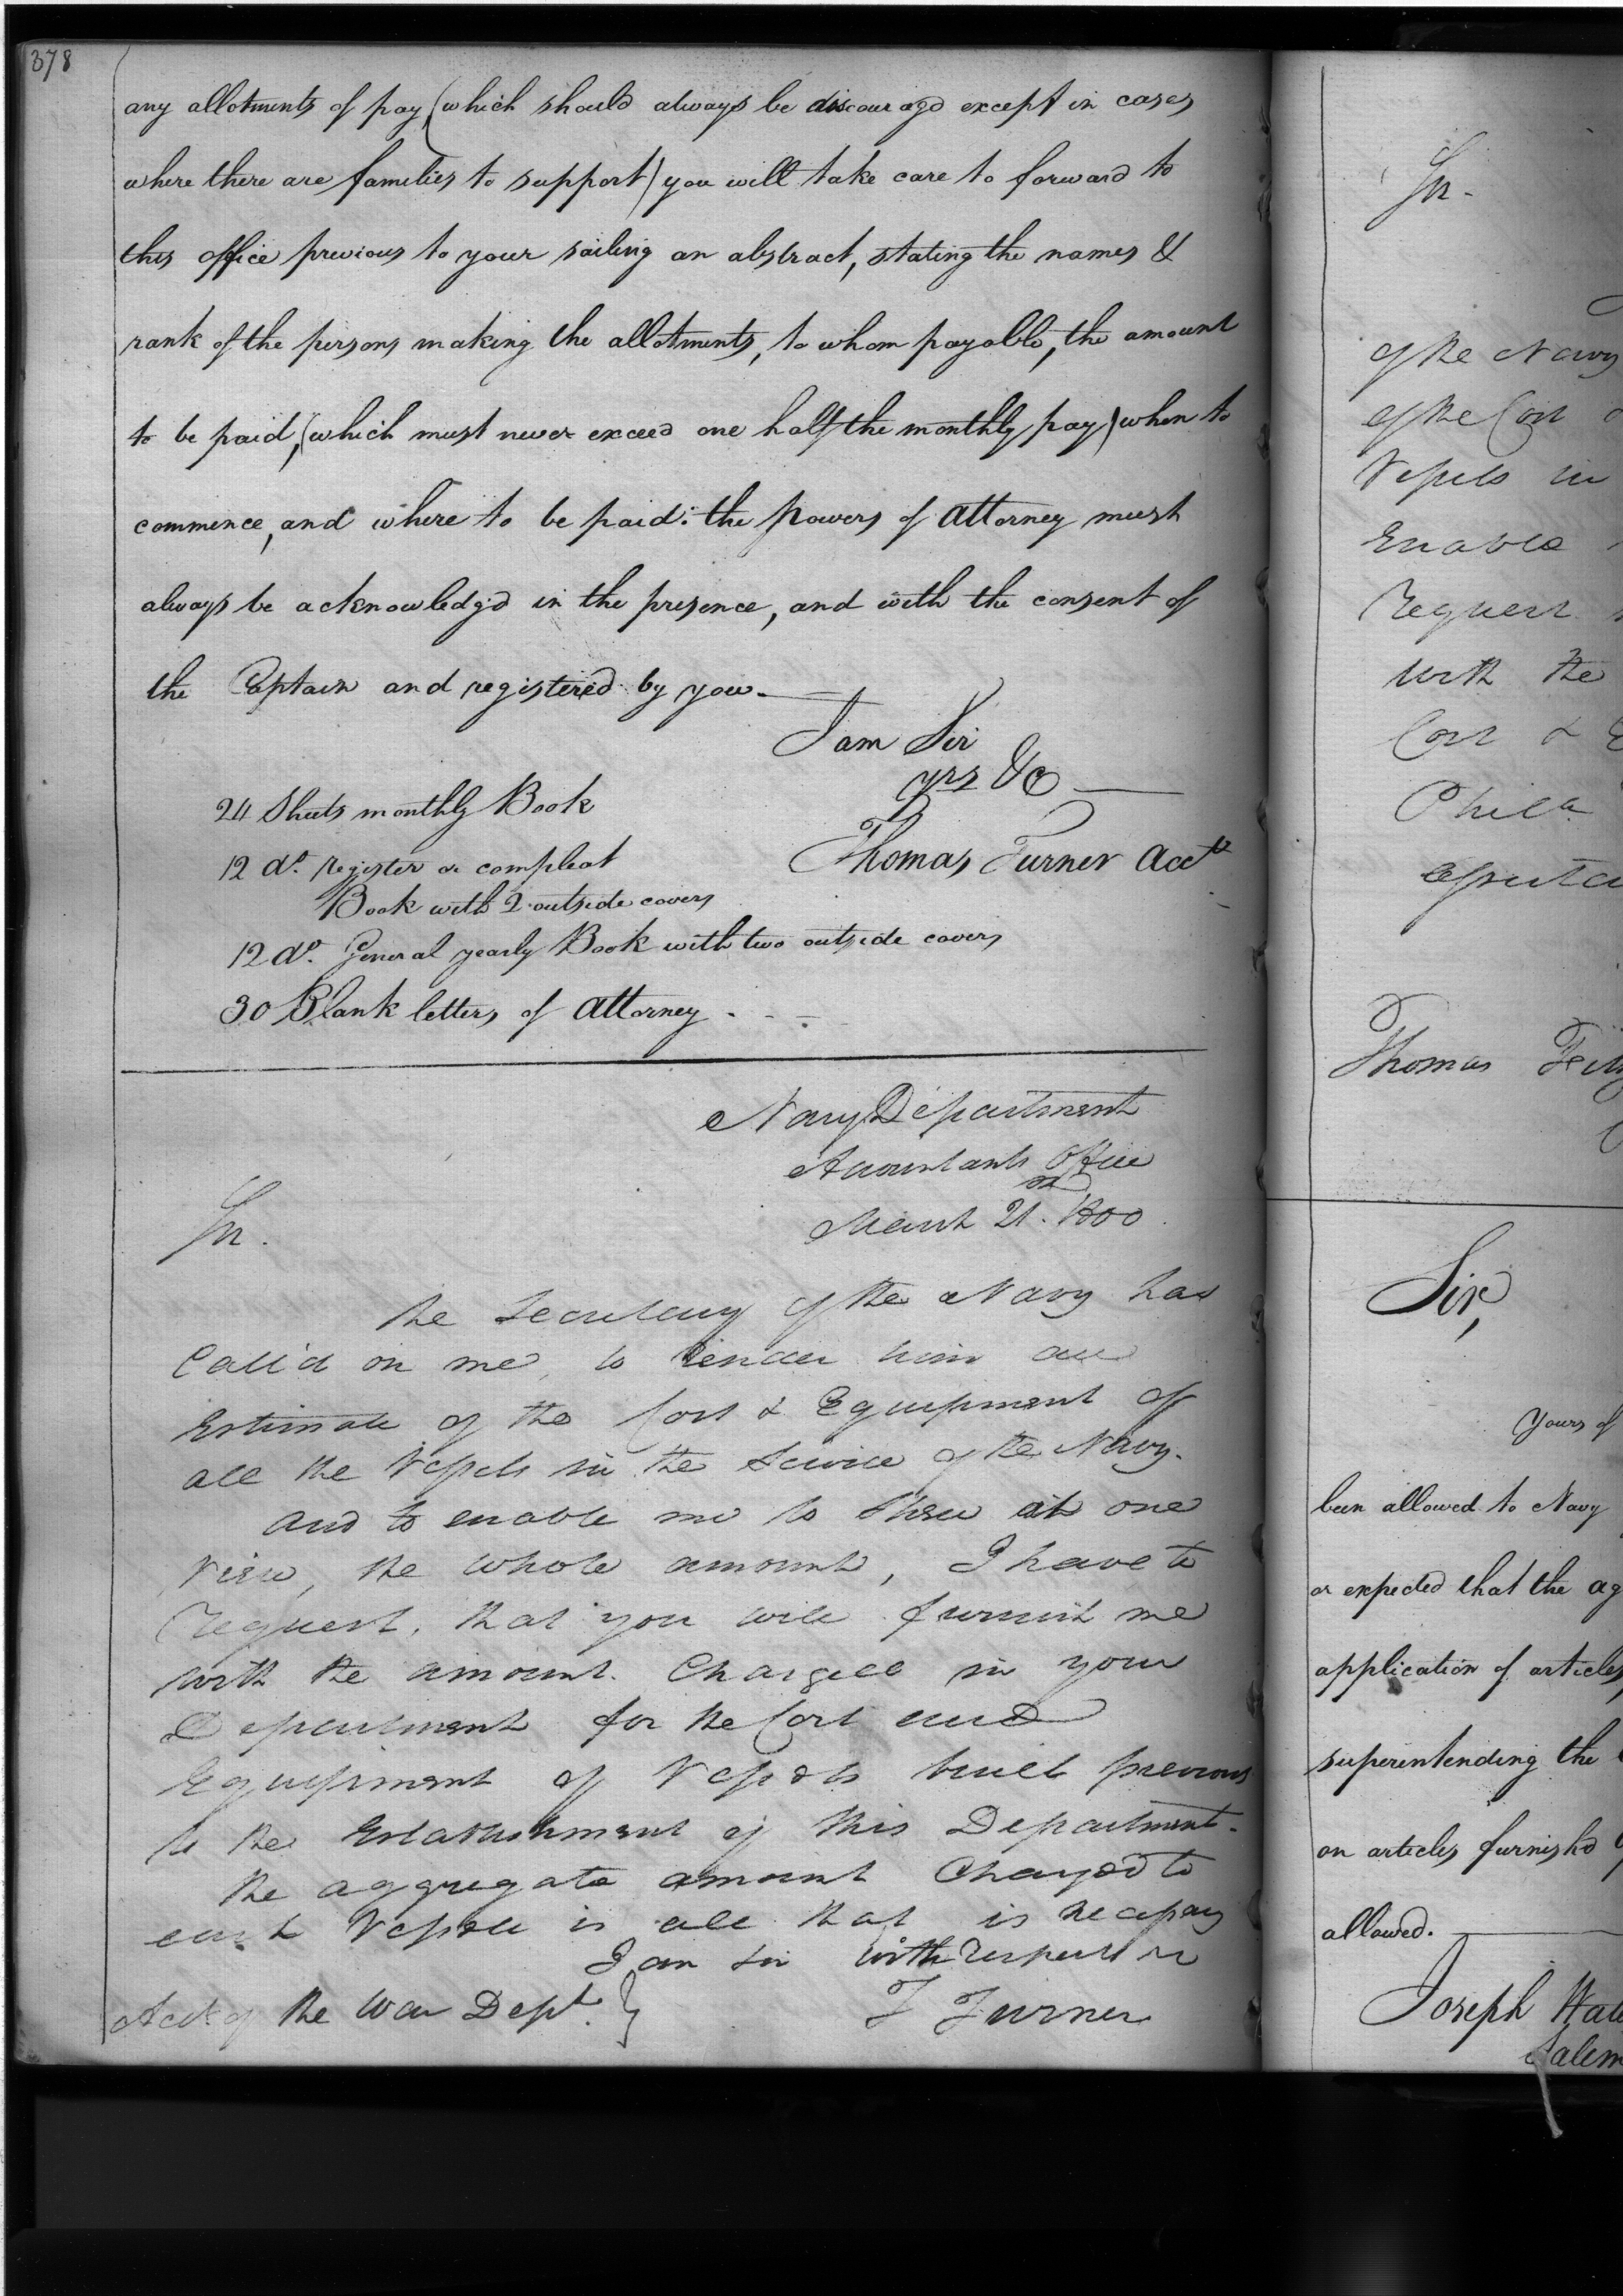 378
any allotments of pay, (which should always be discouragd except in cases
where there are families to support) you will take care to forward to
this office previous to your sailing an abstract, stating the names &
rank of the persons making the allotments, to whom payable, the amount
to be paid, (which must never exceed one half the monthly pay) when to
commence, and where to be paid: the powers of attorney must
always be acknowledg'd in the presence, and with the consent of
the Captain and registered by you.
I am Sir
yrs &c
Thomas Turner Acct
24 Sheets monthly Book
12 do. register or compleat
Book with 2 outside covers
12 do. General yearly Book with two outside covers
30 Blank letters of attorney
Navy Department
Accountants Office
March 21st 1800.
Sir.
The Secretary of the Navy has
Call'd on me, to render him an
Estimate of the Cost & Equipment of
all the Vessels in the Service of the Navy.
and to enable me to shew at one
View, the whole amount, I have to
request, that you will furnish me
with the amount Charged in your
Department for the Cost and
Equipment of Vessels built previous
to the Establishment of this Department.
The aggregate amount Charged to
each Vessel is all that is necessary
I am Sir with respect
T Turner
Acct of the War Dept. }
Sir.
of the Navy
of the Cost
Vessels in
Enable
request
with the
Cost &
Phila
Thomas
Sir,
Yours of
been allowed to Navy
or expected that the ag
application of articles
superintending the
on articles furnish'd
allowed.
Joseph
Salem